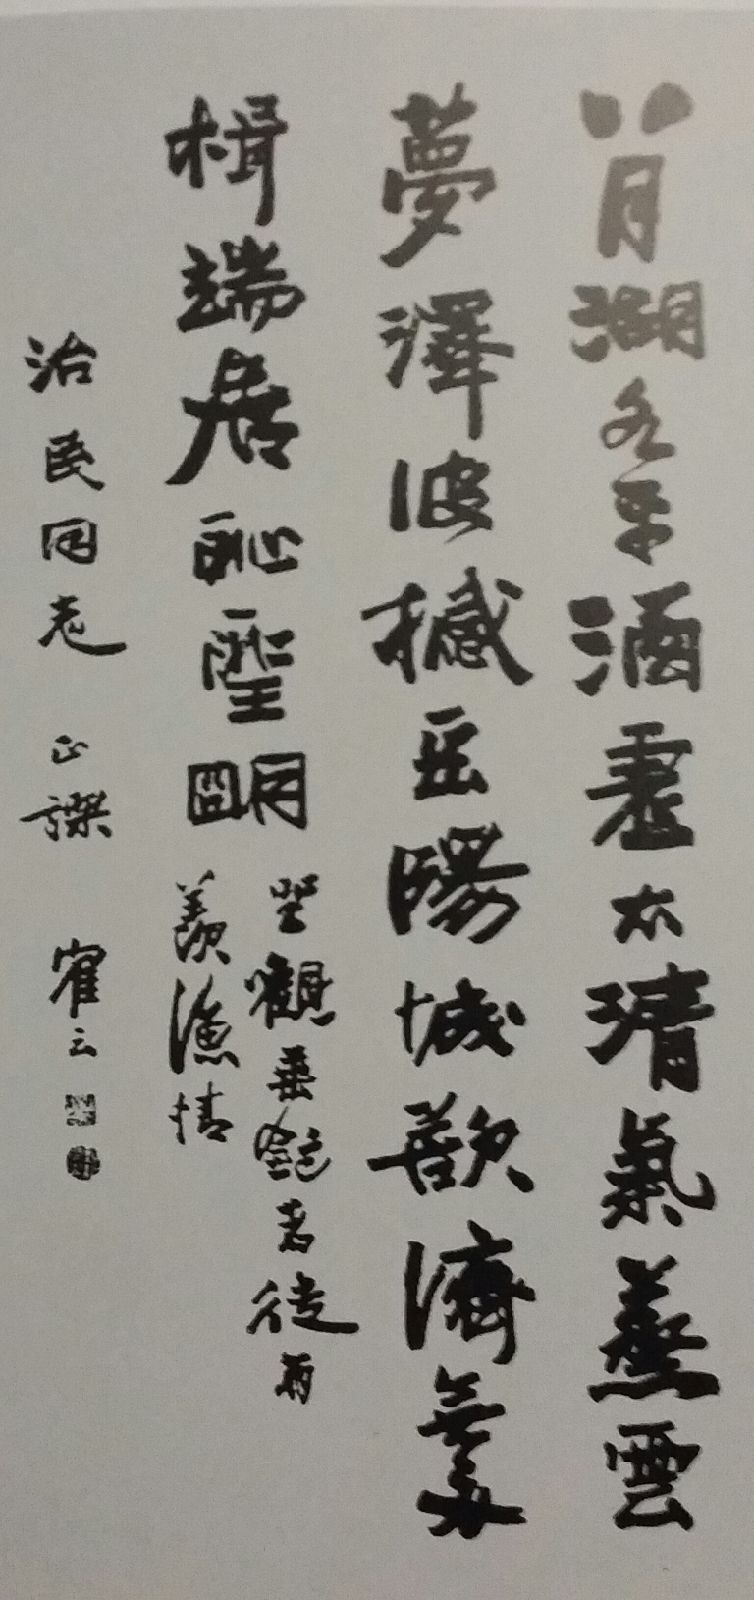 八月湖水平涵虛太清氣蒸雲
夢澤波撼岳陽城欲濟無舟
楫端居恥聖朙
坐觀垂釣者徒有
羨漁情
治民同志 正 寉云